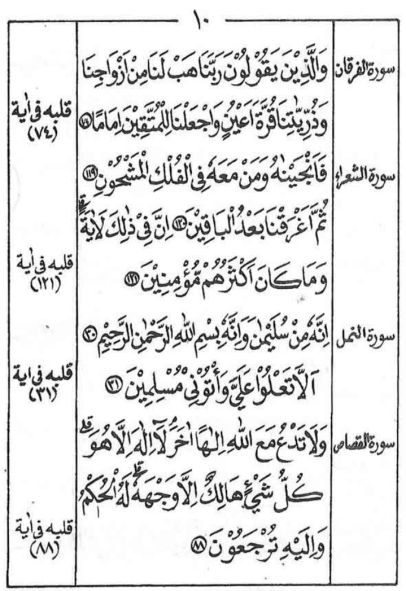 ١٠
سورة الفرقان وَالَّذِيْنَ يَقُوْلُوْنَ رَبَّنَا هَبْ لَنَا مِنْ اَزْوَاجِنَا
وَذُرِّيّٰتِنَا قُرَّةَ اَعْيُنٍ وَّاجْعَلْنَا لِلْمُتَّقِيْنَ اِمَامًا ﴿٧٤﴾ قلبه فى اية (٧٤)
سورة الشعراء فَاَنْجَيْنٰهُ وَمَنْ مَعَهٗ فِى الْفُلْكِ الْمَشْحُوْنِ ﴿١١٩﴾
ثُمَّ اَغْرَقْنَا بَعْدُ الْبَاقِيْنَ ﴿١٢٠﴾ اِنَّ فِىْ ذٰلِكَ لَاٰيَةً
وَمَا كَانَ اَكْثَرُهُمْ مُّؤْمِنِيْنَ ﴿١٢١﴾ قلبه فى اية (١٢١)
سورة النمل اِنَّهٗ مِنْ سُلَيْمٰنَ وَاِنَّهٗ بِسْمِ اللهِ الرَّحْمٰنِ الرَّحِيْمِ ﴿٣٠﴾
اَلَّا تَعْلُوْا عَلَيَّ وَأْتُوْنِيْ مُسْلِمِيْنَ ﴿٣١﴾ قلبه فى اية (٣١)
سورة القصاص وَلَا تَدْعُ مَعَ اللهِ اِلٰهًا اٰخَرَ لَآ اِلٰهَ اِلَّا هُوَ
كُلُّ شَيْءٍ هَالِكٌ اِلَّا وَجْهَهٗ لَهُ الْحُكْمُ
وَاِلَيْهِ تُرْجَعُوْنَ ﴿٨٨﴾ قلبه فى اية (٨٨)